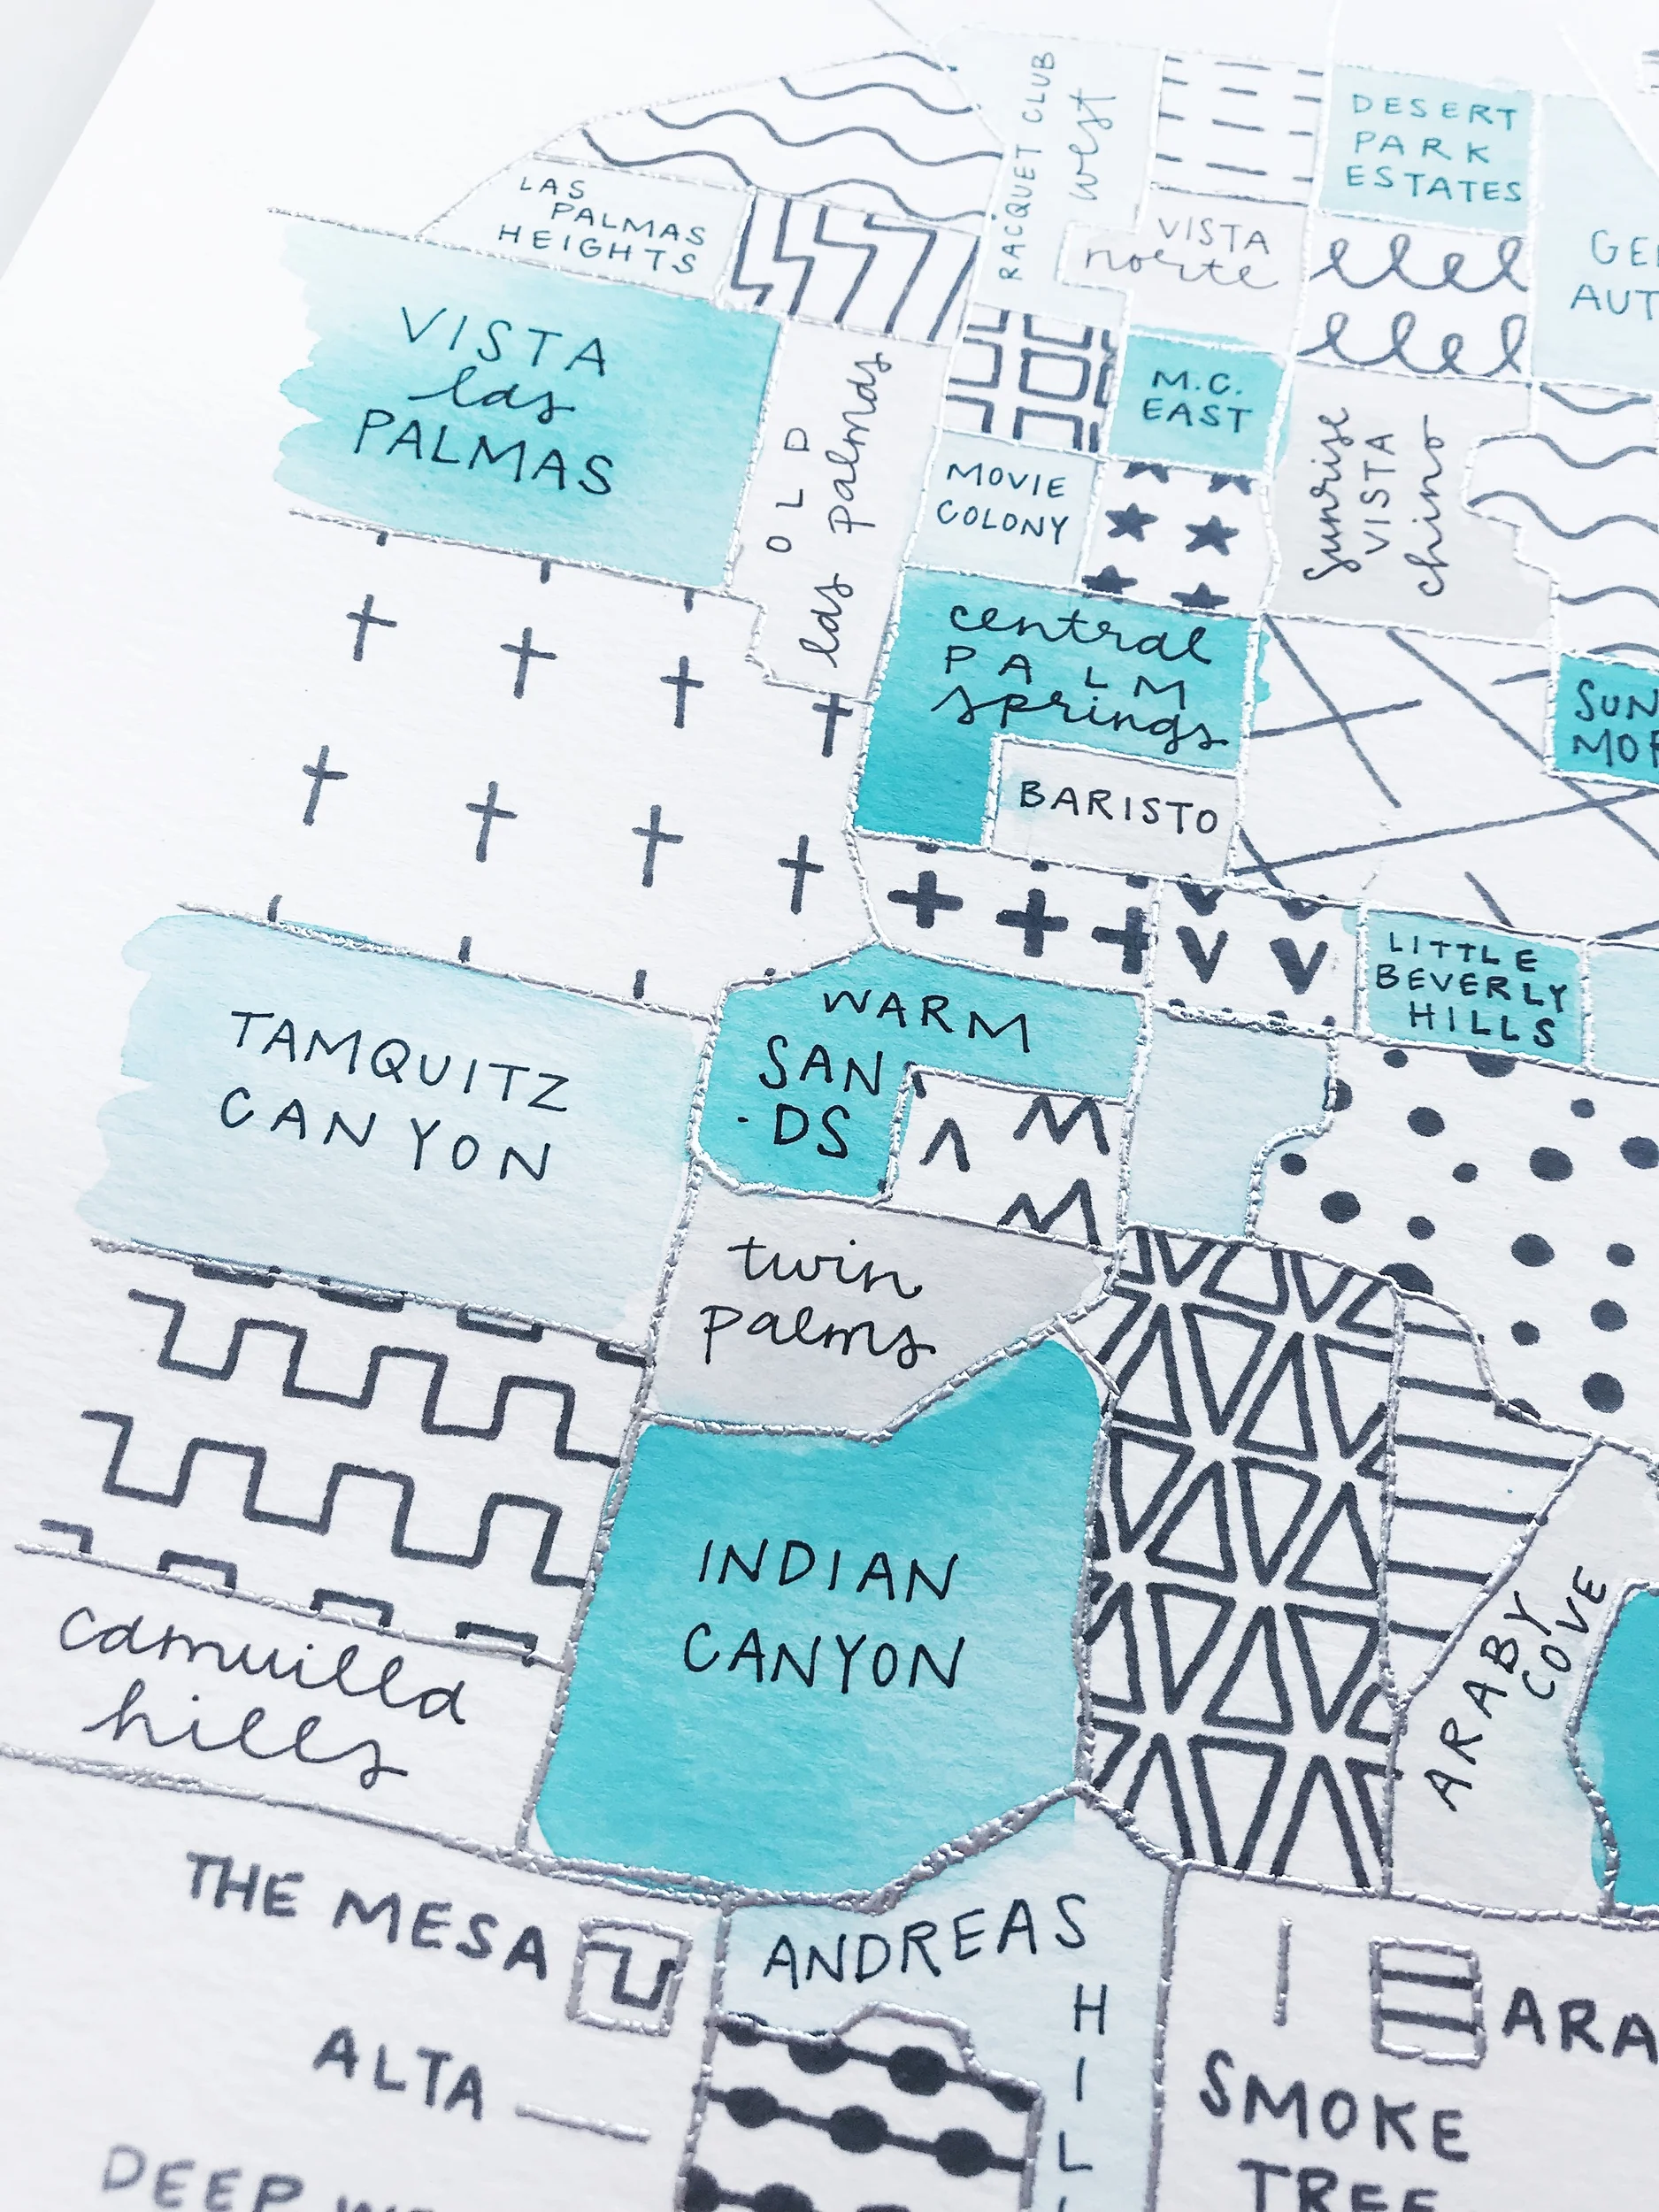 RACQUET CLUB
west
DESERT
PARK
ESTATES
LAS
PALMAS
HEIGHTS
VISTA
norte
VISTA
las
PALMAS
OLD
las palmas
M.C.
EAST
MOVIE
COLONY
sunrise
VISTA
chino
central
PALM
springs
BARISTO
LITTLE
BEVERLY
HILLS
WARM
SAN
-DS
TAMQUITZ
CANYON
twin
palms
INDIAN
CANYON
camuilla
hills
ARABY
COVE
THE MESA
ANDREAS
HIL
ALTA
ARA
SMOKE
TREE
DEEP W
GE
AUT
SUN
MOR